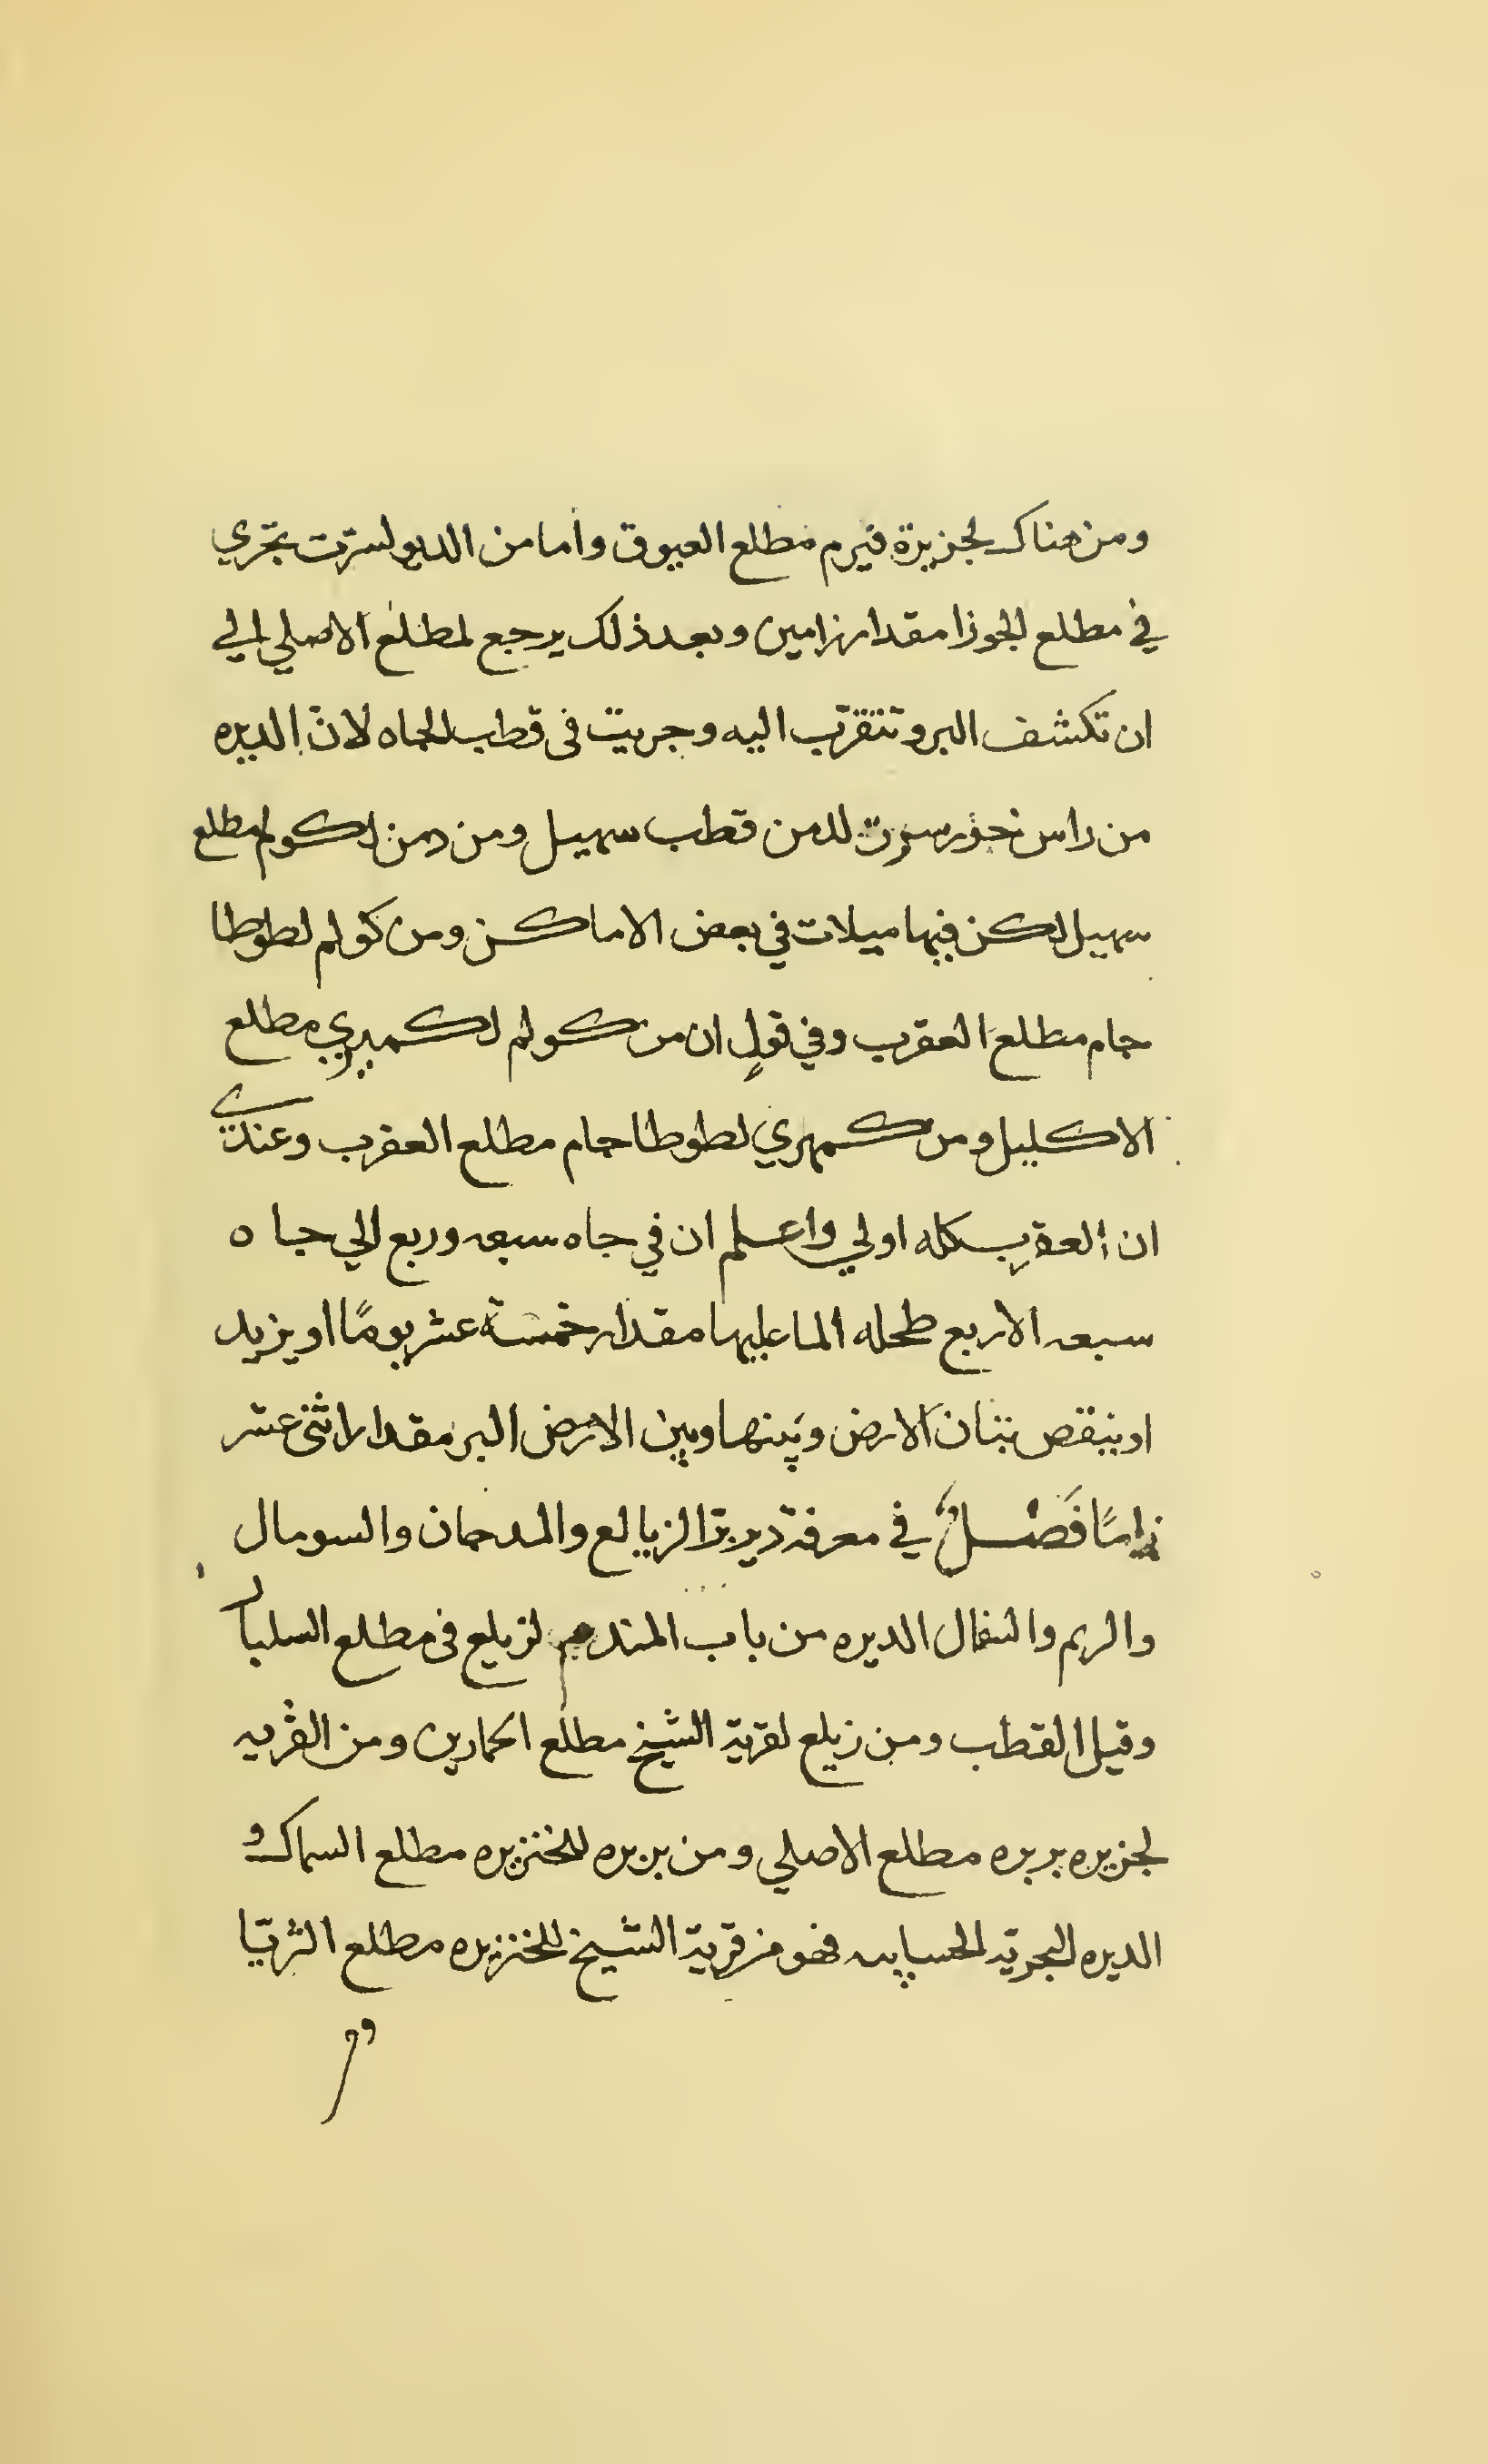 ومن هناك لجزيرة فيرم مطلع العيوق وأما من الديو لسرت تجري
في مطلع الجوزا مقدار زامين وبعد ذلك يرجع لمطلع الاصلي الي
ان تكشف البر وتتقرب اليه وجريت في قطب الجاه لان الديره
من راس نحور سرت للدمن قطب سهيل ومن دمن لكولم مطلع
سهيل لكن فيها ميلات في بعض الاماكن ومن كولم لطوطا
جام مطلع العقرب وفي قولٍ ان من كولم لكمهري مطلع
الاكليل ومن كمهري لطوطا جام مطلع العقرب وعندي
ان العقرب كله اولي واعلم ان في جاه سبعه وربع الي جاه
سبعه الا ربع طحله الما عليها مقدار خمسة عشر بومًا او يزيد
او ينقص تبان الارض وبينها وبين الارض البر مقدار اثني عشر
زامًا فَصْلٌ في معرفة دير بر الزيالع والمدحمان والسومال
والريم والنفال الديره من باب المندم لزيلع في مطلع السلبار
وقيل القطب ومن زيلع لقرية الشيخ مطلع الحمارين ومن القريه
لجزيره بربره مطلع الاصلي ومن بربره للخنزيره مطلع السماك و
الديره البحرية الحسابيه فهو من قرية الشيخ للخنزيره مطلع الثريا